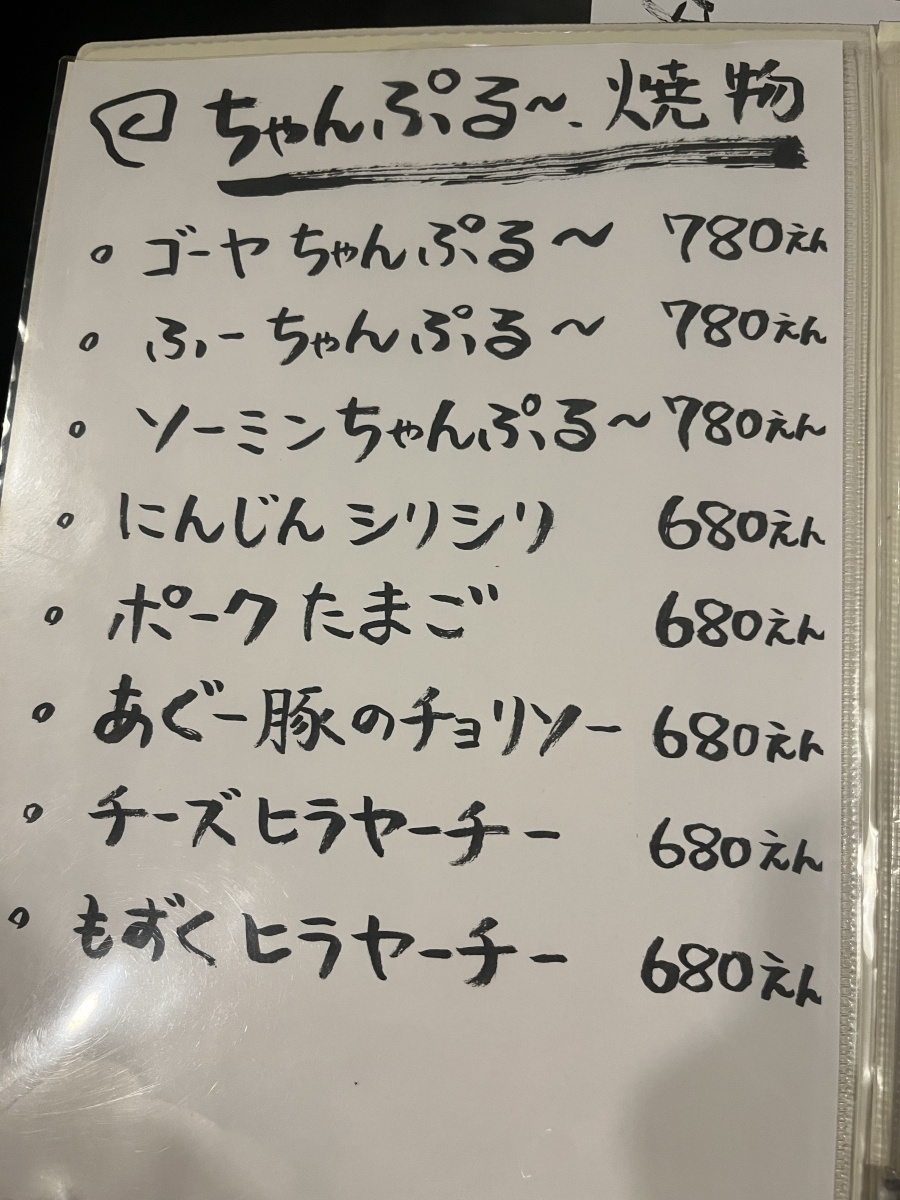 ちゃんぷる〜.焼物
ゴーヤちゃんぷる〜 780えん
ふーちゃんぷる〜 780えん
ソーミンちゃんぷる〜 780えん
にんじんシリシリ 680えん
ポークたまご 680えん
あぐー豚のチョリソー 680えん
チーズヒラヤーチー 680えん
もずくヒラヤーチー 680えん